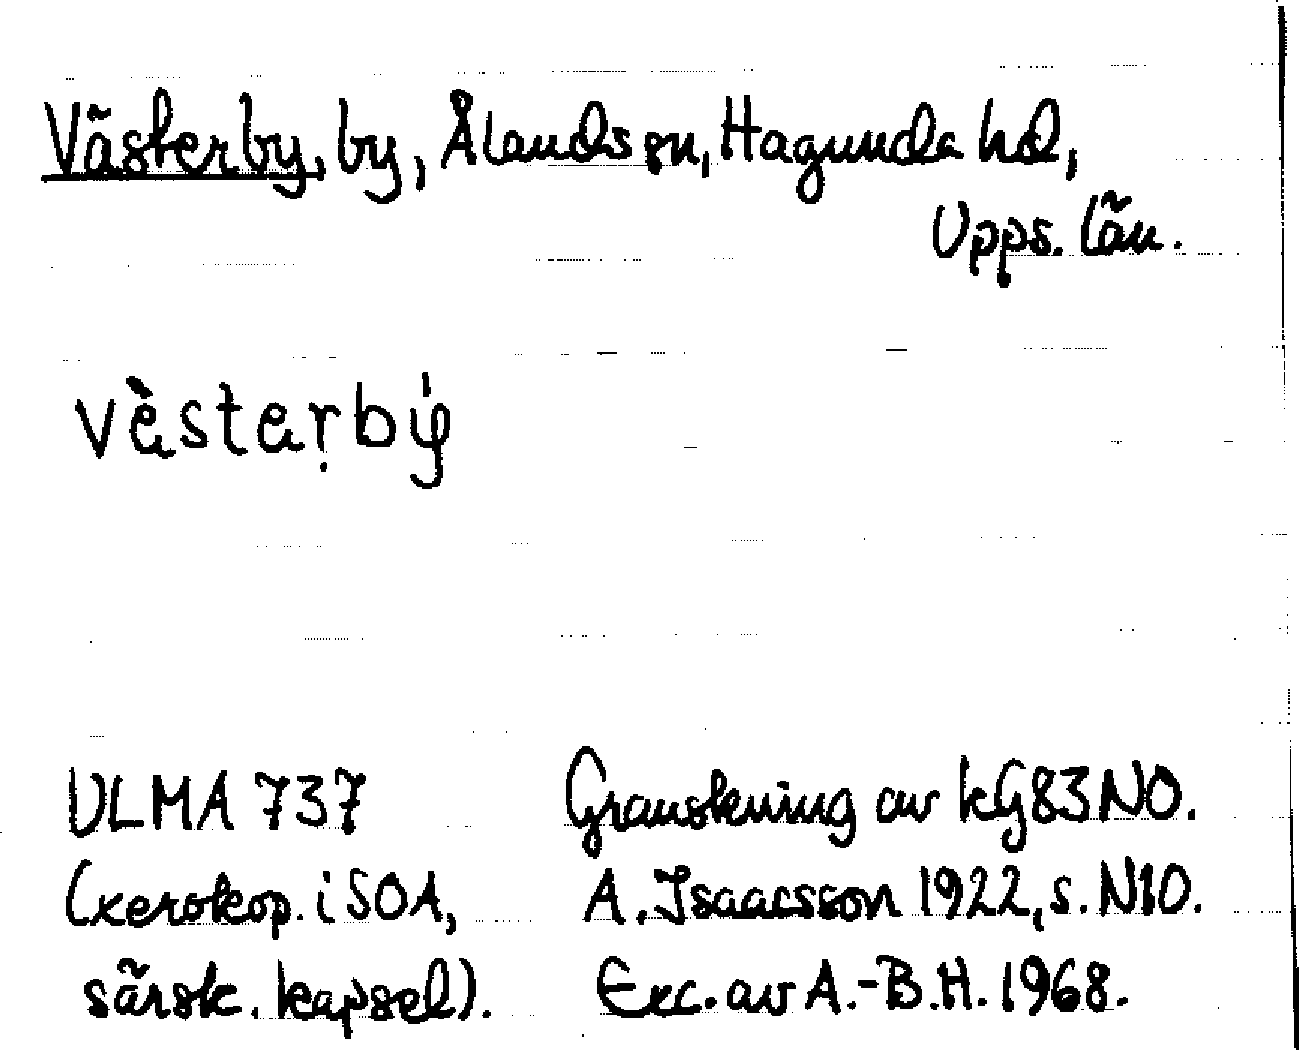 Västerby, by, Ålands sn, Hagunda hd,
Upps. län.
vèstar̤bý
ULMA 737
(xerokop. i SOA,
särsk. kapsel).
Granskning av kG83NO.
A. Isaacsson 1922, s. N10.
Exc. av A.-B.H. 1968.